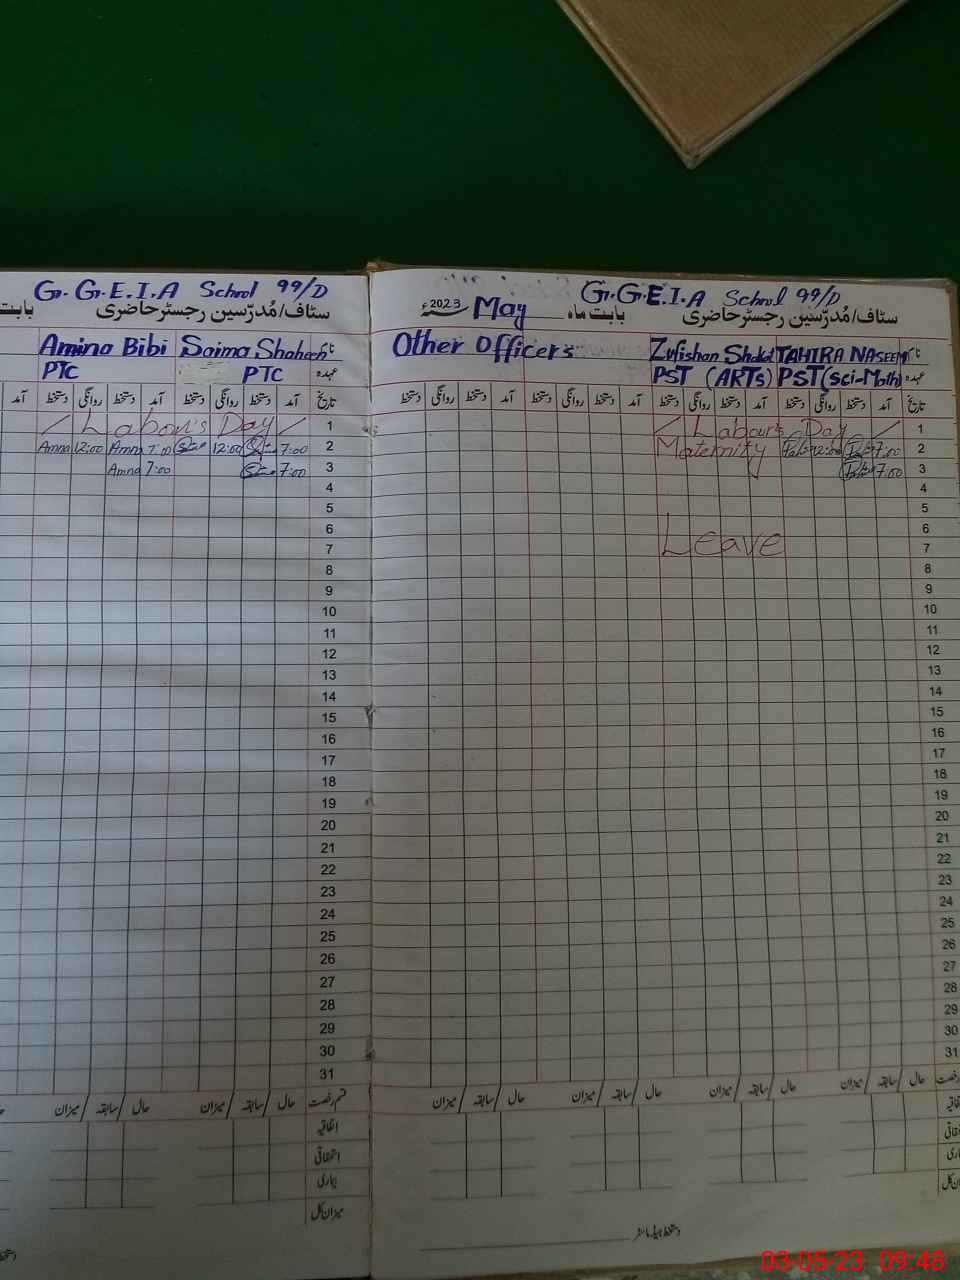 G.G.E.I.A School 99/D
سٹاف/مُدرّسین رجسٹر حاضری
بابت
Amina Bibi Saima Shaheen نام
PTC PTC عہدہ
تاریخ آمد دستخط روانگی دستخط آمد دستخط روانگی دستخط آمد
Labour's Day 1
Amna 12:00 Amna 7:00 12:00 7:00 2
Amna 7:00 7:00 3
4
5
6
7
8
9
10
11
12
13
14
15
16
17
18
19
20
21
22
23
24
25
26
27
28
29
30
31
قسم رخصت حال/سابقہ/میزان حال/سابقہ/میزان
اتفاقیہ
استحقاقی
بیماری
میزان کل
دستخط
G.G.E.I.A School 99/D
سٹاف/مُدرّسین رجسٹر حاضری بابت ماہ May 2023ء
Other Officers Zufishan Shakil TAHIRA NASEEM نام
PST (ARTs) PST (sci-Math) عہدہ
تاریخ آمد دستخط روانگی دستخط آمد دستخط روانگی دستخط آمد دستخط روانگی دستخط آمد دستخط روانگی دستخط
Labour's Day 1
Maternity 12:00 7:00 2
7:00 3
4
5
6
Leave 7
8
9
10
11
12
13
14
15
16
17
18
19
20
21
22
23
24
25
26
27
28
29
30
31
رخصت حال/سابقہ/میزان حال/سابقہ/میزان حال/سابقہ/میزان حال/سابقہ/میزان
دستخط ہیڈ ماسٹر
03-05-23 09:48